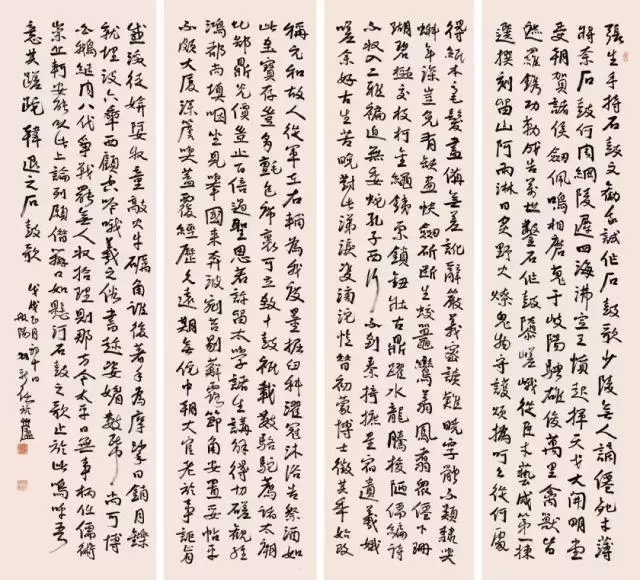 張生手持石鼓文勸我試作石鼓歌少陵無人謫仙死才薄
將奈石鼓何周綱陵遲四海沸宣王憤起揮天戈大開明堂
受朝賀諸侯劍佩鳴相磨蒐于岐陽騁雄俊萬里禽獸皆
遮羅鐫功勒成告萬世鑿石作鼓隳嵯峨從臣才藝咸第一揀
選撰刻留山阿雨淋日炙野火燎鬼物守護煩撝呵公從何處
得紙本毫髮盡備無差訛辭嚴義密讀難曉字體不類隸與
蝌年深豈免有缺畫快劍斫斷生蛟鼉鸞翔鳳翥眾仙下珊
瑚碧樹交枝柯金繩鐵索鎖鈕壯古鼎躍水龍騰梭陋儒編詩
不收入二雅褊迫無委蛇孔子西行不到秦掎摭星宿遺羲娥
嗟余好古生苦晚對此涕淚雙滂沱憶昔初蒙博士徵其年始改
稱元和故人從軍在右輔為我度量掘臼科濯冠沐浴告祭酒如
此至寶存豈多氈包席裹可立致十鼓祇載數駱駝薦諸太廟
比郜鼎光價豈止百倍過聖恩若許留太學諸生講解得切磋觀經
鴻都尚填咽坐見舉國來奔波剜苔剔蘚露節角安置妥帖平
不頗大廈深簷與蓋覆經歷久遠期無佗中朝大官老於事詎肯
感激徒媕婀牧童敲火牛礪角誰復著手為摩挲日銷月鑠
就埋沒六年西顧空吟哦羲之俗書趁姿媚數紙尚可博
白鵝繼周八代爭戰罷無人收拾理則那方今太平日無事柄任儒術
崇丘軻安能以此上論列願借辯口如懸河石鼓之歌止於此嗚呼吾
意其蹉跎韓退之石鼓歌